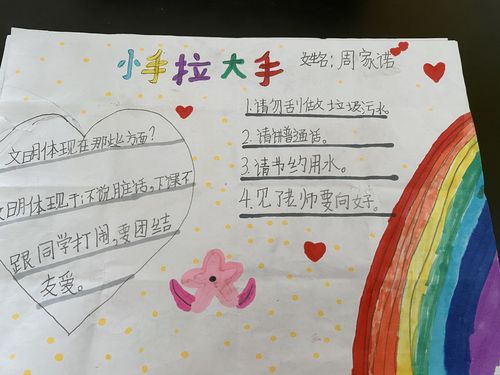 小手拉大手
姓名：周家诺
文明体现在那些方面？
文明体现于：不说脏话，下课不
跟同学打闹，要团结
友爱。
1.请勿刮做垃圾污水。
2.请讲普通话。
3.请节约用水。
4.见了老师要向好。